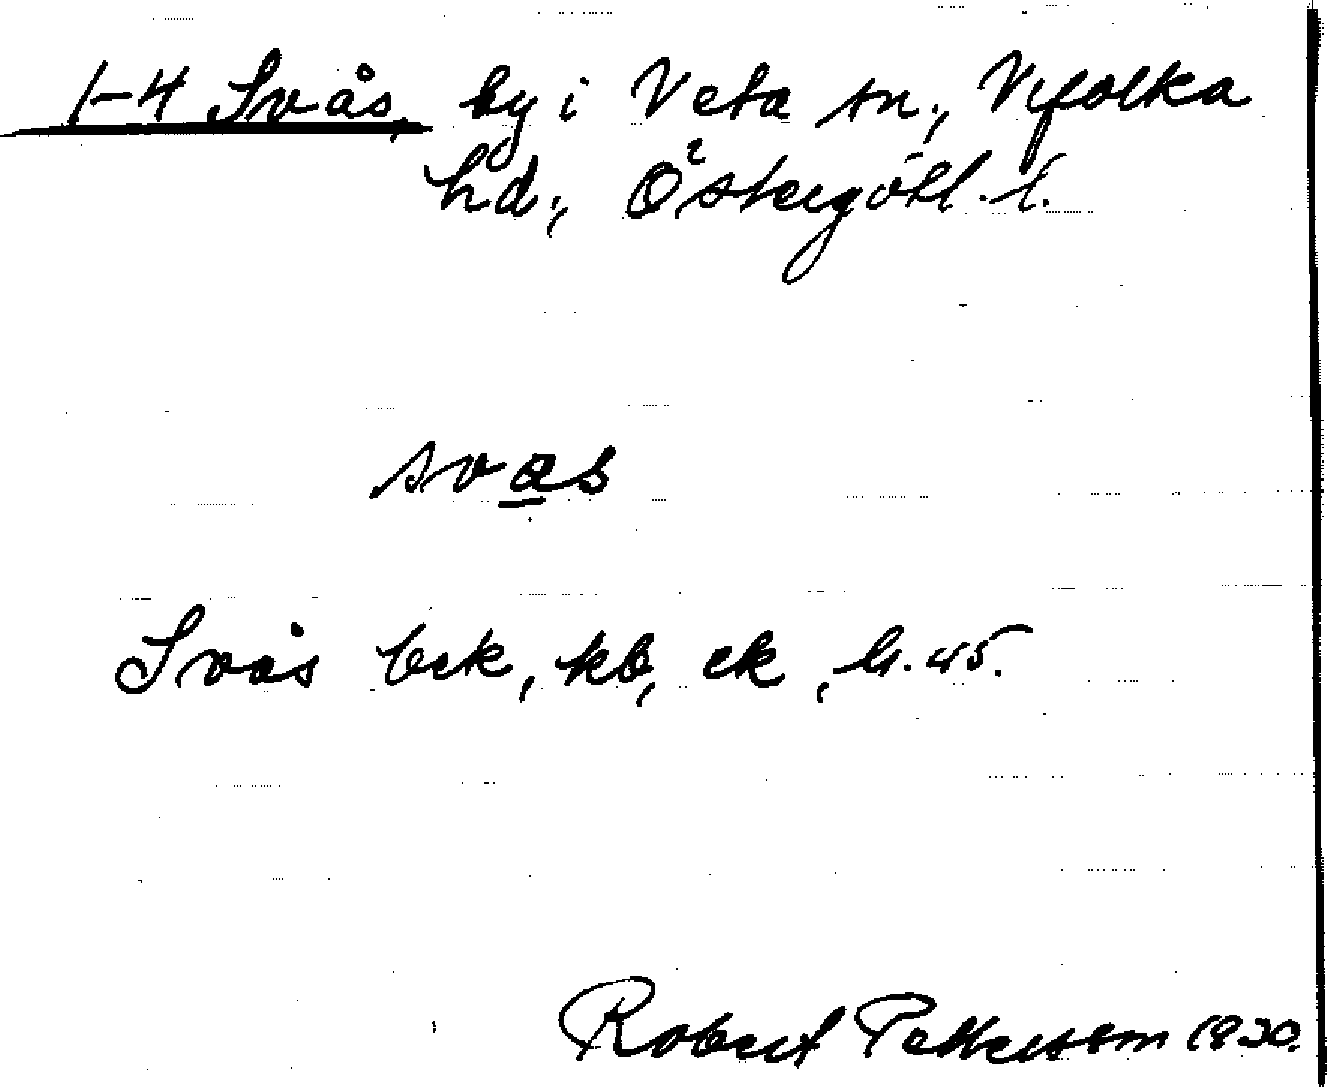 1-4 Svås, by i Veta sn., Vifolka
hd., Östergötl. l.
svas
Svås bck, kb, ek, h. 45.
Robert Pettersson 1930.